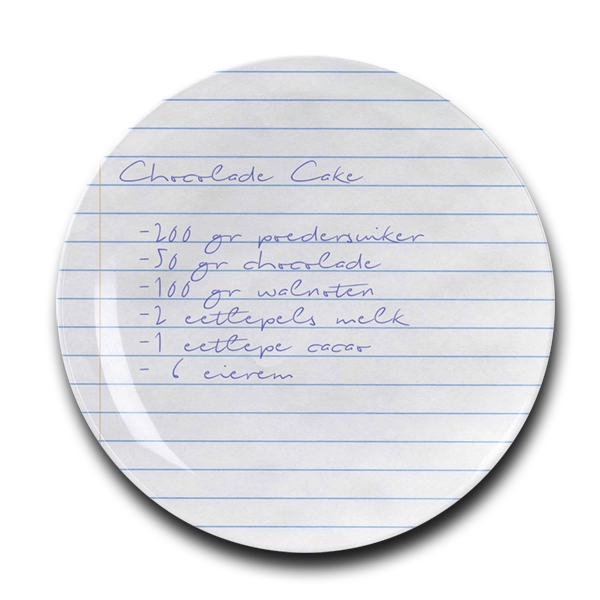 Chocolade Cake
-200 gr poedersuiker
-50 gr chocolade
-100 gr walnoten
-2 eetlepels melk
-1 eetlepe cacao
- 6 eierem